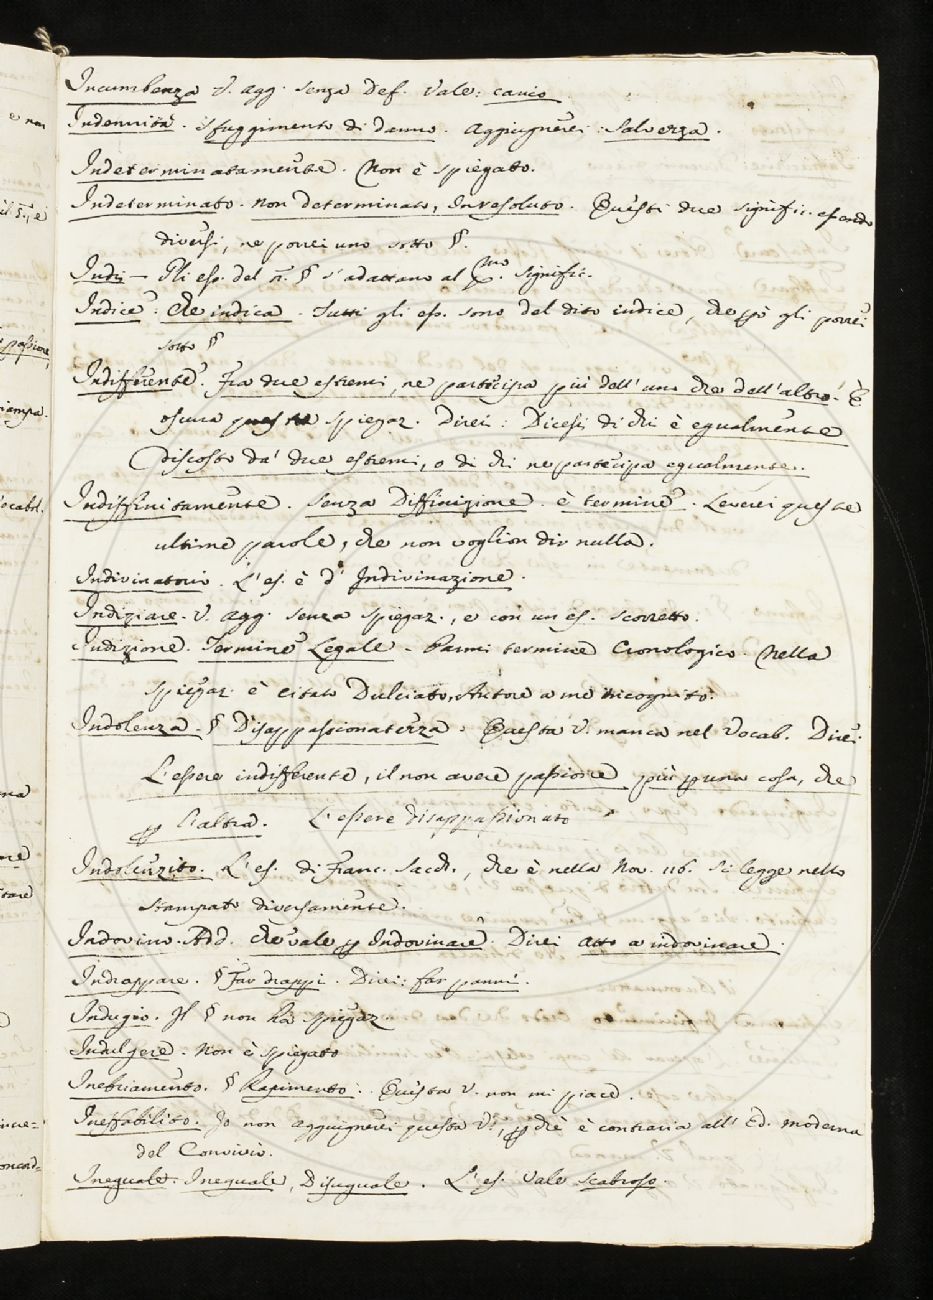 Incumbenza V. agg. senza Def. Vale: carico
Indennità. sfuggimento di danno. Aggiugnerei: Salvezza.
Indeterminatamente. Non è spiegato.
Indeterminato. non determinato, Inresoluto. Questi due signific. essendo
diversi, ne porrei uno sotto §.
Indi — Gli es. del n. § s'adattano al p.mo signific.
Indice. Che indica. Tutti gli es. sono del dito indice, che però gli porrei
sotto §
Indifferente. Fra due estremi, ne partecipa più dell'uno che dell'altro. È
oscura questa spiegaz. Direi: Dicesi di chi è egualmente
Discosto da' due estremi, o di chi ne partecipa egualmente.
Indiffinitamente. Senza Diffinizione. è termine. Leverei queste
ultime parole, che non voglion dir nulla.
Indivinatorio. L'es. è d'Indivinazione.
Indiziare. V. agg. senza spiegaz., e con un es. scorretto.
Indizione. Termine Legale. Parmi termine Cronologico. Nella
spiegaz. è citato Dulciato, Autore a me incognito.
Indolenza. § Disappassionatezza. Questa V. manca nel Vocab. Direi:
L'essere indifferente, il non avere passione più per una cosa, che
per l'altra. L'essere disappassionato
Indolenzito. L'es. di Franc. Sacch., che è nella Nov. 116. si legge nello
stampato diversamente.
Indovino. Add. Che vale per Indovinare. Direi atto a indovinare.
Indrappare. § Far drappi. Direi: far panni.
Indugio. Il § non ha spiegaz.
Indulgere. Non è spiegato
Inebriamento. § Rapimento. Questa V. non mi piace.
Ineffabilito. Io non aggiugnerei questa V., perchè è contraria all'Ed. moderna
del Convivio.
Ineguale. Ineguale, Disuguale. L'es. vale scabroso.